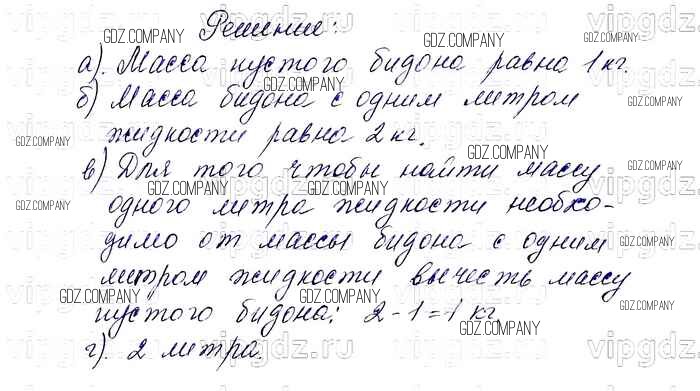 Решение:
а). Масса пустого бидона равна 1 кг.
б) Масса бидона с одним литром
жидкости равна 2 кг.
в) Для того чтобы найти массу
одного литра жидкости необхо-
димо от массы бидона с одним
литром жидкости вычесть массу
пустого бидона: 2 - 1 = 1 кг
г). 2 литра.
GDZ.COMPANY
vipgdz.ru